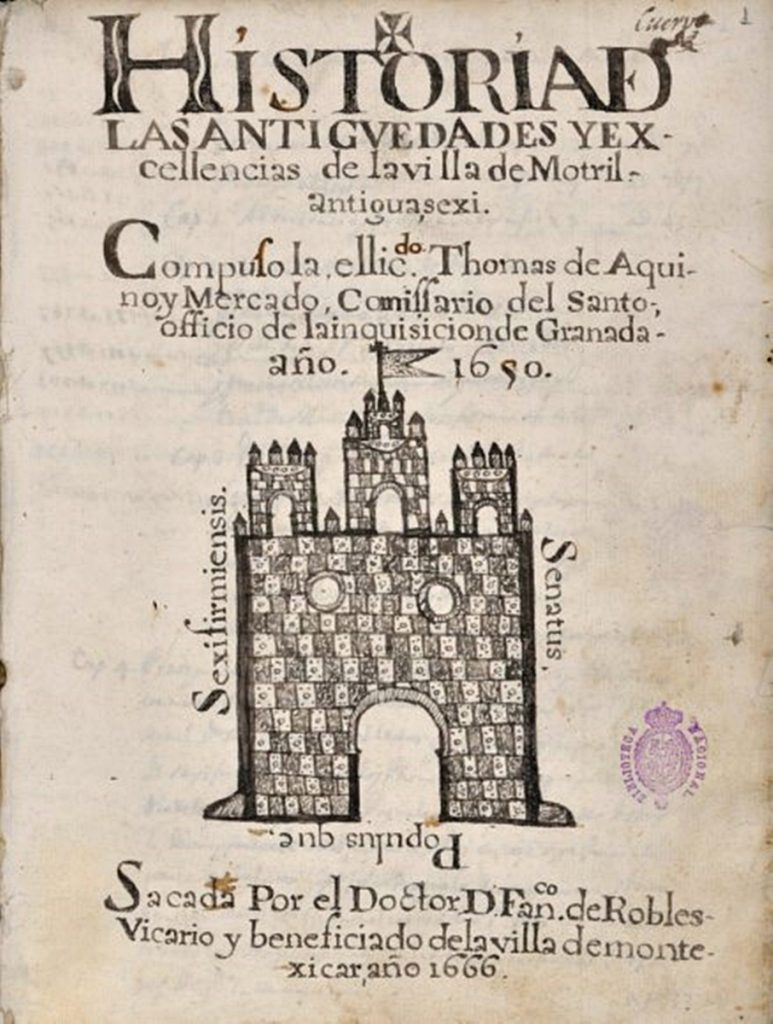 Cuervo
1
HISTORIA D
LAS ANTIGVEDADES Y EX-
cellencias de la villa de Motril-
antigua sexi.
Compuſo la, el licdo. Thomas de Aqui-
no y Mercado, Comiſſario del Santo-,
officio de la inquisicion de Granada-
año. 1650.
Sexifirmiensis.
Senatus.
Populus que.
BIBLIOTECA NACIONAL
Sacada Por el Doctor D. Fañco. de Robles-
Vicario y beneficiado de la villa de monte-
xicar, año 1666.